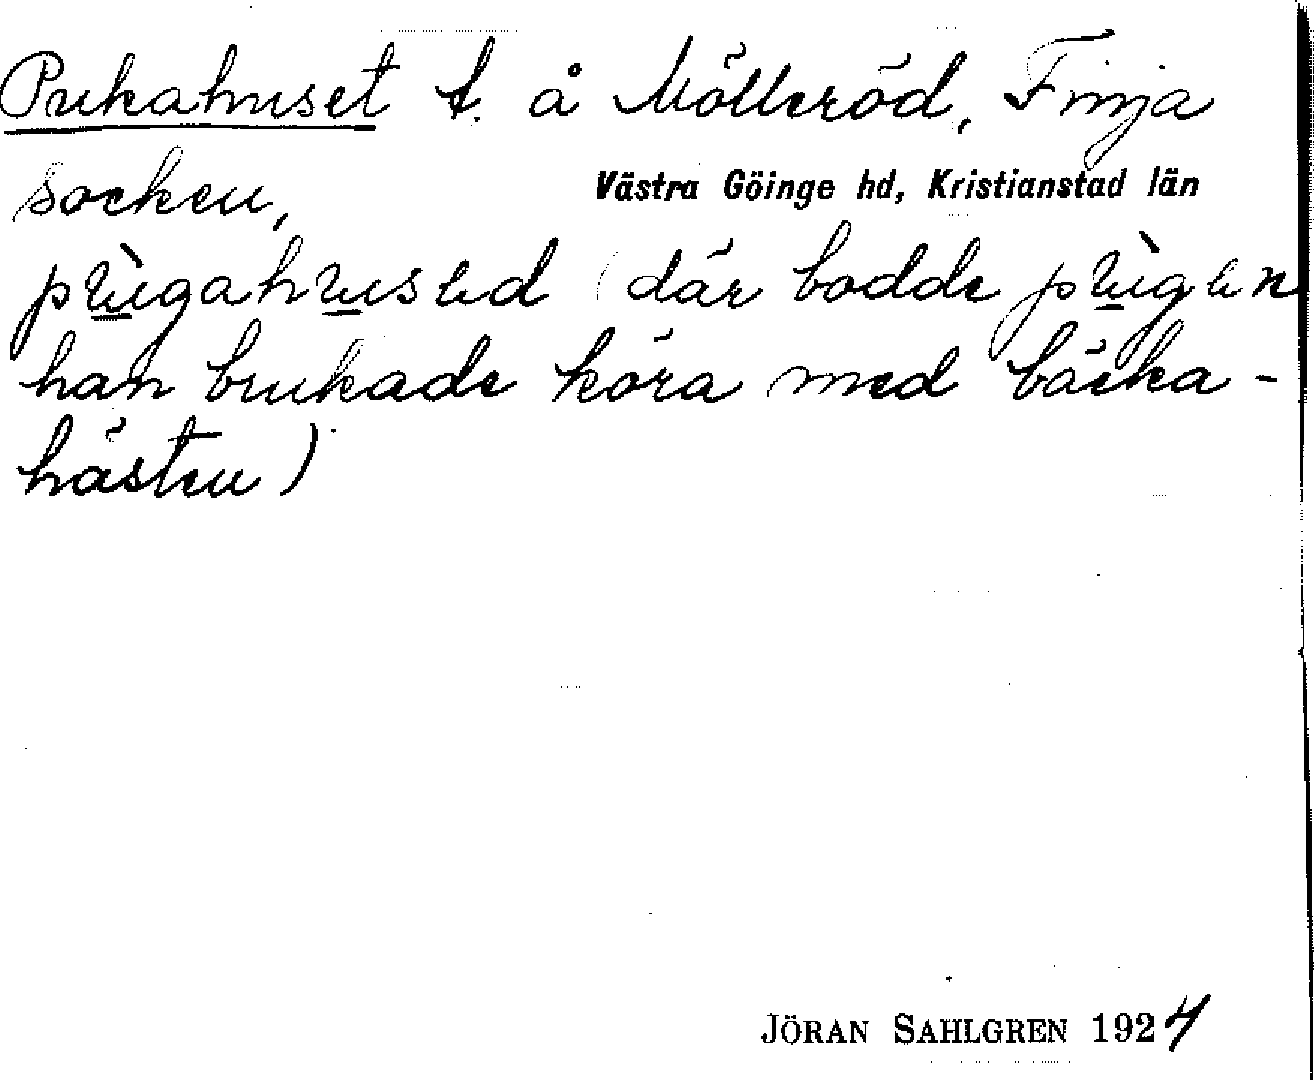 Pukahuset t. å Mölleröd, Finja
socken,
Västra Göinge hd, Kristianstad län
pʉ̀gahʉsəd (där bodde pʉ̀gən
han brukade köra med bäcka-
hästen)
JÖRAN SAHLGREN 1924